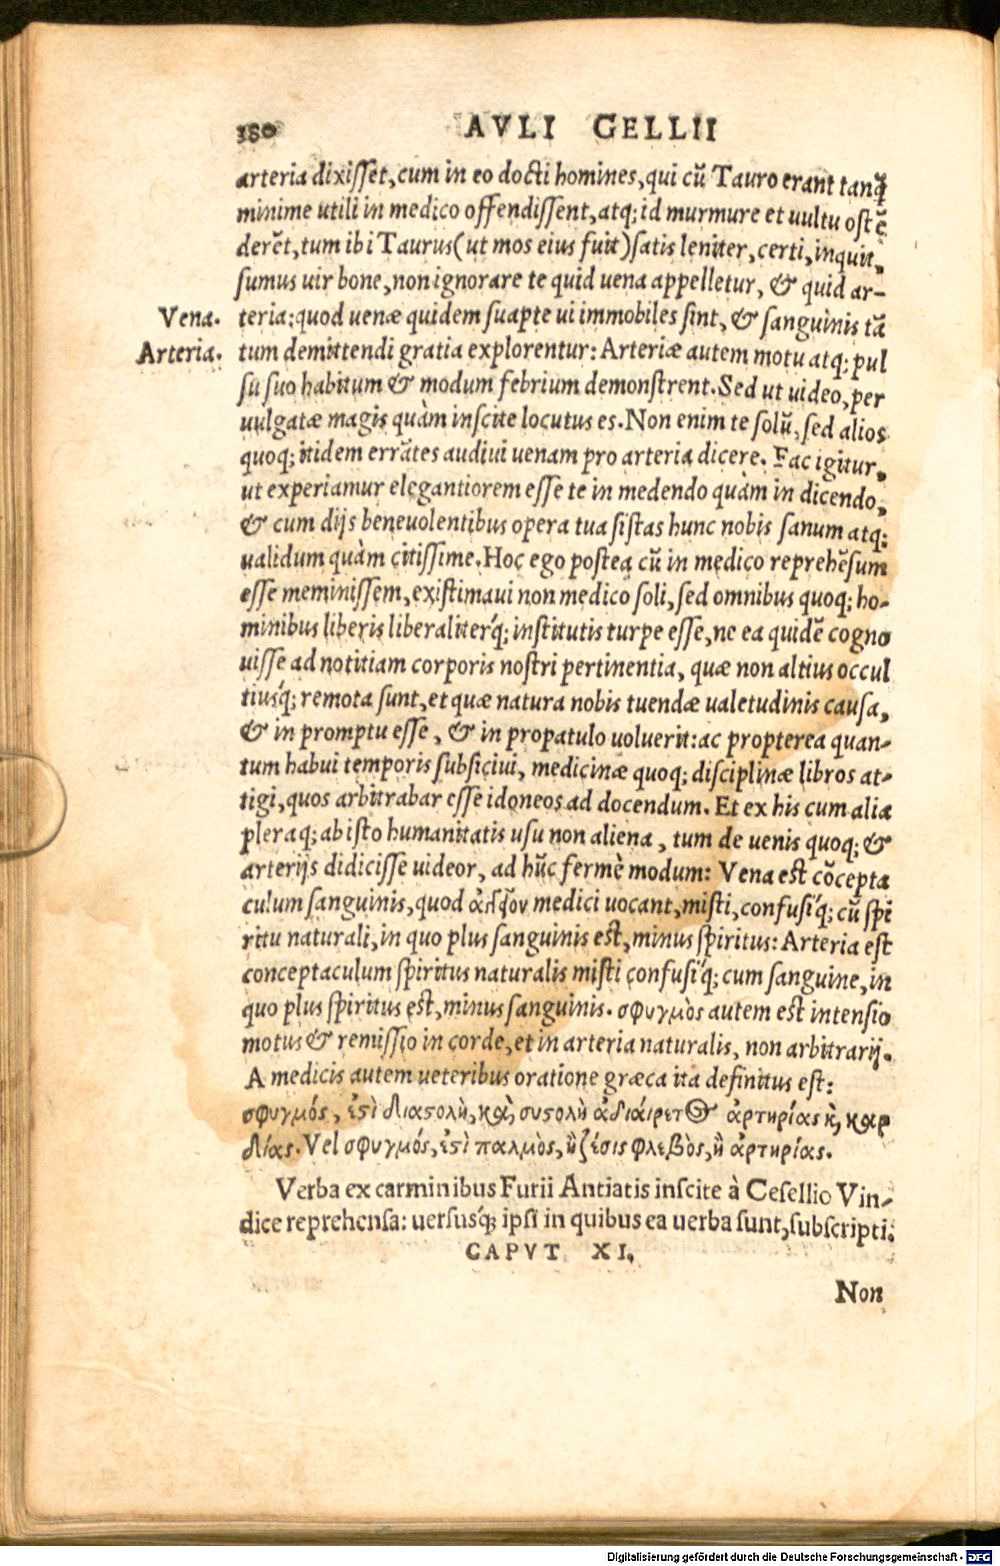 380 AVLI GELLII
arteria dixiſſet, cum in eo docti homines, qui cū Tauro erant tanꝗ̃
minime utili in medico offendiſſent, atq; id murmure et uultu oſtē
derēt, tum ibi Taurus (ut mos eius fuit) ſatis leniter, certi, inquit,
ſumus uir bone, non ignorare te quid uena appelletur, & quid ar-
Vena. teria: quod uenæ quidem ſuapte ui immobiles ſint, & ſanguinis tā
Arteria. tum demittendi gratia explorentur: Arteriæ autem motu atq; pul
ſu ſuo habitum & modum febrium demonſtrent. Sed ut uideo, per
uulgatæ magis quàm inſcite locutus es. Non enim te ſolū, ſed alios
quoq; itidem errātes audiui uenam pro arteria dicere. Fac igitur,
ut experiamur elegantiorem eſſe te in medendo quàm in dicendo,
& cum dijs beneuolentibus opera tua ſiſtas hunc nobis ſanum atq;
ualidum quàm citiſſime. Hoc ego poſtea cū in medico reprehēſum
eſſe meminiſſem, exiſtimaui non medico ſoli, ſed omnibus quoq; ho-
minibus liberis liberaliterq́; inſtitutis turpe eſſe, ne ea quidē cogno
uiſſe ad notitiam corporis noſtri pertinentia, quæ non altius occul
tiusq́; remota ſunt, et quæ natura nobis tuendæ ualetudinis cauſa,
& in promptu eſſe, & in propatulo uoluerit: ac propterea quan-
tum habui temporis ſubſiciui, medicinæ quoq; diſciplinæ libros at-
tigi, quos arbitrabar eſſe idoneos ad docendum. Et ex his cum alia
pleraq; ab iſto humanitatis uſu non aliena, tum de uenis quoq; &
arterijs didiciſſe uideor, ad hūc fermè modum: Vena eſt cōcepta
culum ſanguinis, quod ἀγγεῖον medici uocant, miſti, confuſiq́; cū ſpi
ritu naturali, in quo plus ſanguinis eſt, minus ſpiritus: Arteria eſt
conceptaculum ſpiritus naturalis miſti confuſiq́; cum ſanguine, in
quo plus ſpiritus eſt, minus ſanguinis. σφυγμὸς autem eſt intenſio
motus & remiſſio in corde, et in arteria naturalis, non arbitrarij.
A medicis autem ueteribus oratione græca ita definitus eſt:
σφυγμός, ἐστὶ διαστολὴ, καὶ, συστολὴ ἀδιάιρετος ἀρτηρίας κὴ, καρ
δίας. Vel σφυγμός, ἐστὶ παλμὸς, ἢ ζέσις φλεβὸς, ἢ ἀρτηρίας.
Verba ex carminibus Furii Antiatis inſcite à Ceſellio Vin-
dice reprehenſa: uerſusq́; ipſi in quibus ea uerba ſunt, ſubſcripti.
CAPVT XI.
Non
Digitalisierung gefördert durch die Deutsche Forschungsgemeinschaft - DFG